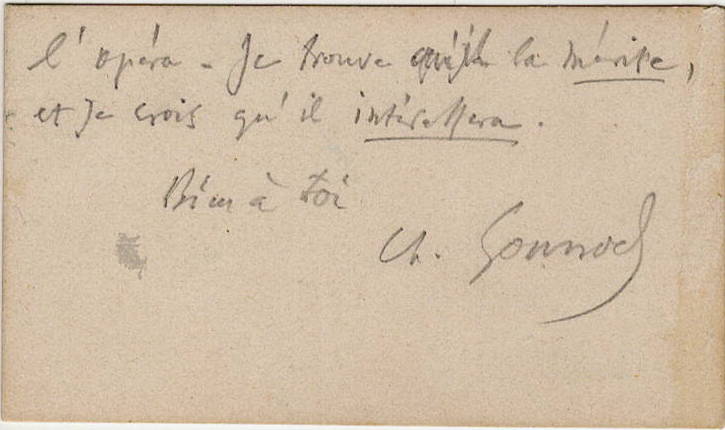 l'opéra - Je trouve qu'il la mérite,
et Je crois qu'il intéressera.
Bien à toi
Ch. Gounod